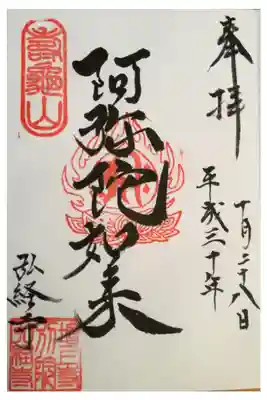 奉拝
十月二十八日
平成三十年
阿弥陀如来
壽龜山
弘経寺